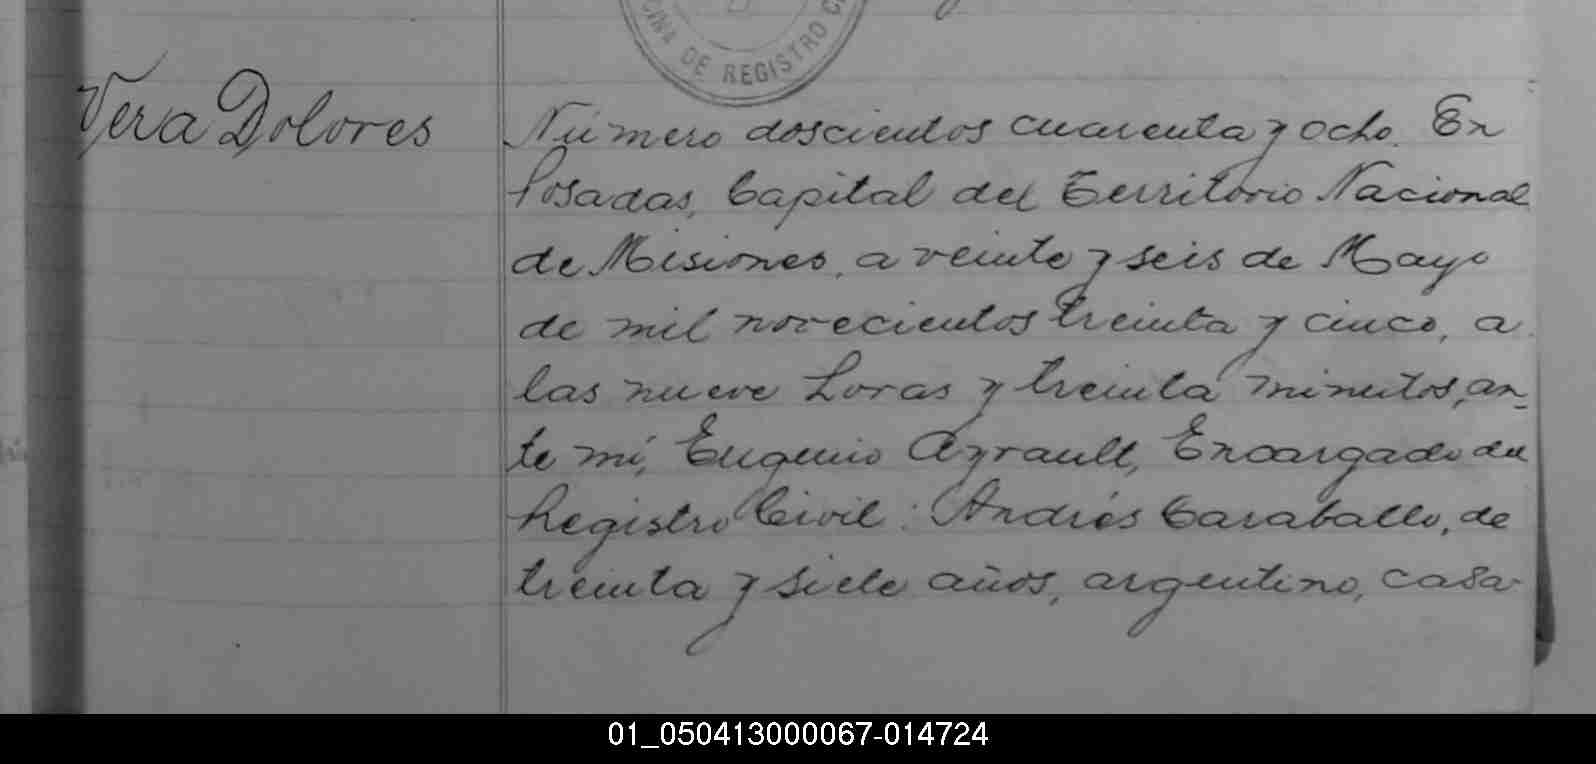 CINA DE REGISTRO CI
Vera Dolores
Número doscientos cuarenta y ocho. En
Posadas, Capital del Territorio Nacional
de Misiones, a veinte y seis de Mayo
de mil novecientos treinta y cinco, a
las nueve horas y treinta minutos, an-
te mí, Eugenio Ayrault, Encargado del
Registro Civil: Andrés Caraballo, de
treinta y siete años, argentino, casa-
01_050413000067-014724